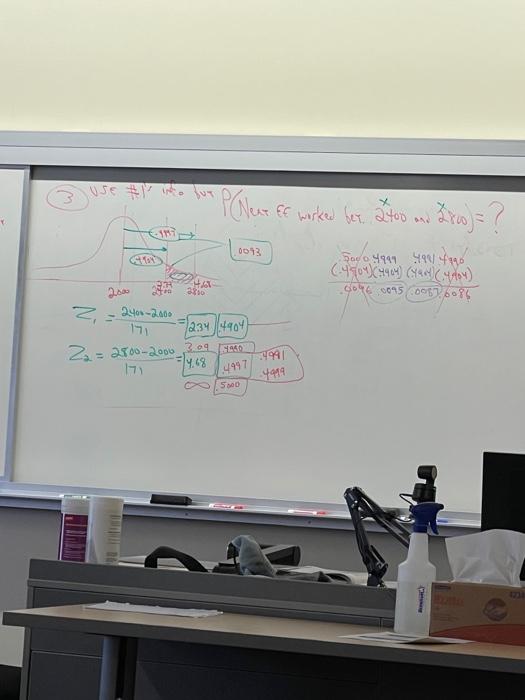 ③ USE #1's info but P(Next EE worked bet. 2400 and 2800) = ?
x x
.4997
.4904
.0093
2000 2400 2800
2.34 4.68
.5000 .4999 .4991 .4990
(.4904) (.4904) (.4904) (.4904)
.0096 .0095 .0087 .0086
Z₁ = 2400-2000 / 171 = 2.34 .4904
Z₂ = 2800-2000 / 171 = 4.68 .4997
3.09 .4990
.4991
.4999
∞ .5000